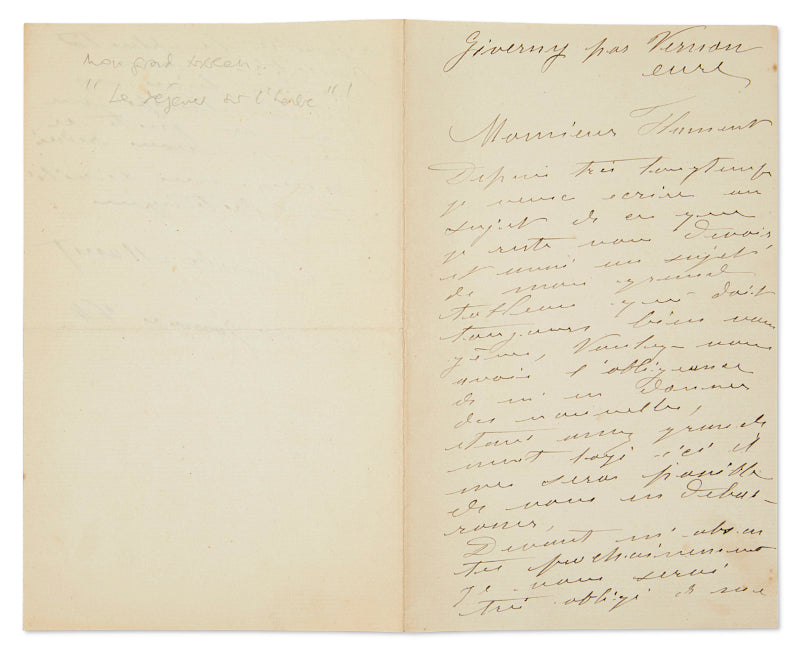 mon grand tableau :
"Le déjeuner sur l'herbe"!
Giverny par Vernon
eure
Monsieur Flament
Depuis très longtemps
je veux ecrire au
sujet de ce que
je reste vous devoir
et aussi au sujet
de mon grand
tableau qui doit
toujours bien vous
gêner, Voulez-vous
avoir l'obligeance
de m'en donner
des nouvelles,
etant assez grande
ment logé ici il
me sera possible
de vous en debar-
rasser,
Devant m'absen
ter prochainement
je vous serai
très obligé de me